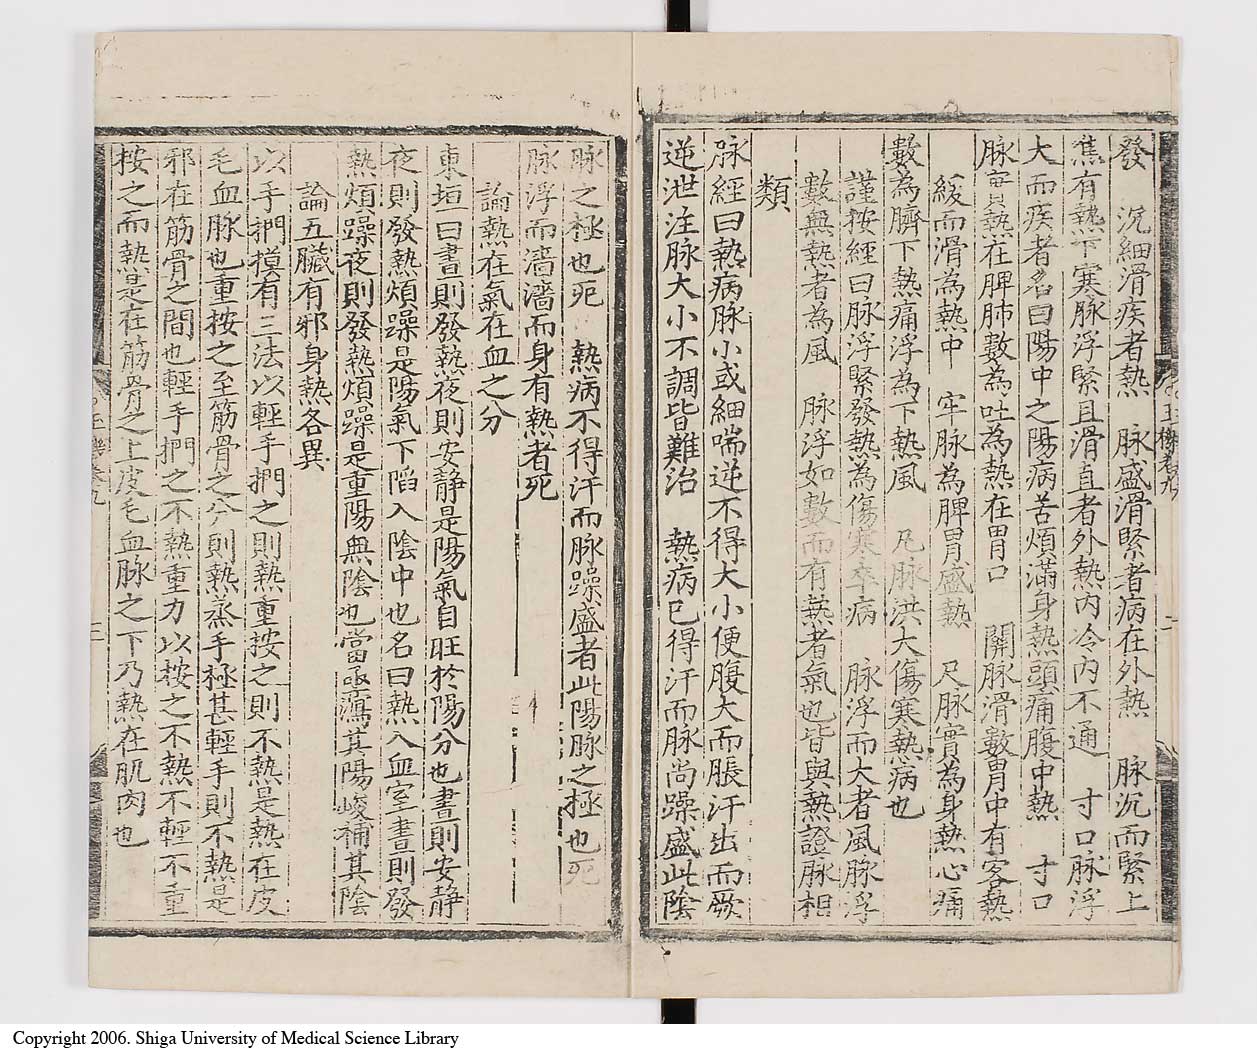 發　沉細滑疾者熱　脉盛滑緊者病在外熱　脉沉而緊上
焦有熱下寒脉浮緊且滑直者外熱内冷内不通　寸口脉浮
大而疾者名曰陽中之陽病苦煩滿身熱頭痛腹中熱　寸口
脉實熱在脾肺數為吐為熱在胃口　關脉滑數胃中有客熱
緩而滑為熱中　牢脉為脾胃盛熱　尺脉實為身熱心痛
數為臍下熱痛浮為下熱風　凡脉洪大傷寒熱病也
謹按經曰脉浮緊發熱為傷寒卒病　脉浮而大者風脉浮
數無熱者為風　脉浮如數而有熱者氣也皆與熱證脉相
類
脉經曰熱病脉小或細喘逆不得大小便腹大而脹汗出而厥
逆泄注脉大小不調皆難治　熱病已得汗而脉尚躁盛此陰
脉之極也死　熱病不得汗而脉躁盛者此陽脉之極也死
脉浮而濇濇而身有熱者死
論熱在氣在血之分
東垣曰晝則發熱夜則安静是陽氣自旺於陽分也晝則安静
夜則發熱煩躁是陽氣下陷入陰中也名曰熱入血室晝則發
熱煩躁夜則發熱煩躁是重陽無陰也當亟瀉其陽峻補其陰
論五臟有邪身熱各異
以手捫摸有三法以輕手捫之則熱重按之則不熱是熱在皮
毛血脉也重按之至筋骨之分則熱蒸手極甚輕手則不熱是
邪在筋骨之間也輕手捫之不熱重力以按之不熱不輕不重
按之而熱是在筋骨之上皮毛血脉之下乃熱在肌肉也
Copyright 2006. Shiga University of Medical Science Library